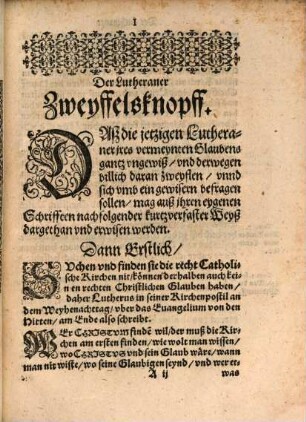 1
Der Lutheraner
Zweyffelsknopff.
DAß die jetzigen Luthera-
ner jres vermeynten Glaubens
gantz vngewiß / vnd derwegen
billich daran zweyflen / vnnd
sich vmb ein gewisern befragen
sollen / mag auß jhren eygenen
Schrifften nachfolgender kurtzverfaster Weyß
dargethan vnd erwisen werden.
Dann Erstlich /
SVchen vnd finden sie die recht Catholi-
sche Kirchen nit / können derhalben auch kei-
nen rechten Christlichen Glauben haben /
daher Lutherus in seiner Kirchenpostil an
dem Weyhenachttag / vber das Euangelium von den
Hirten / am Ende also schreibt.
WEr CHRISTVM findē wil / der muß die Kir-
chen am ersten finden / wie wolt man wissen /
wo CHRISTVS vnd sein Glaub wäre / wann
man nit wiste / wo seine Glaubigen seynd / vnd wer et-
A ij was